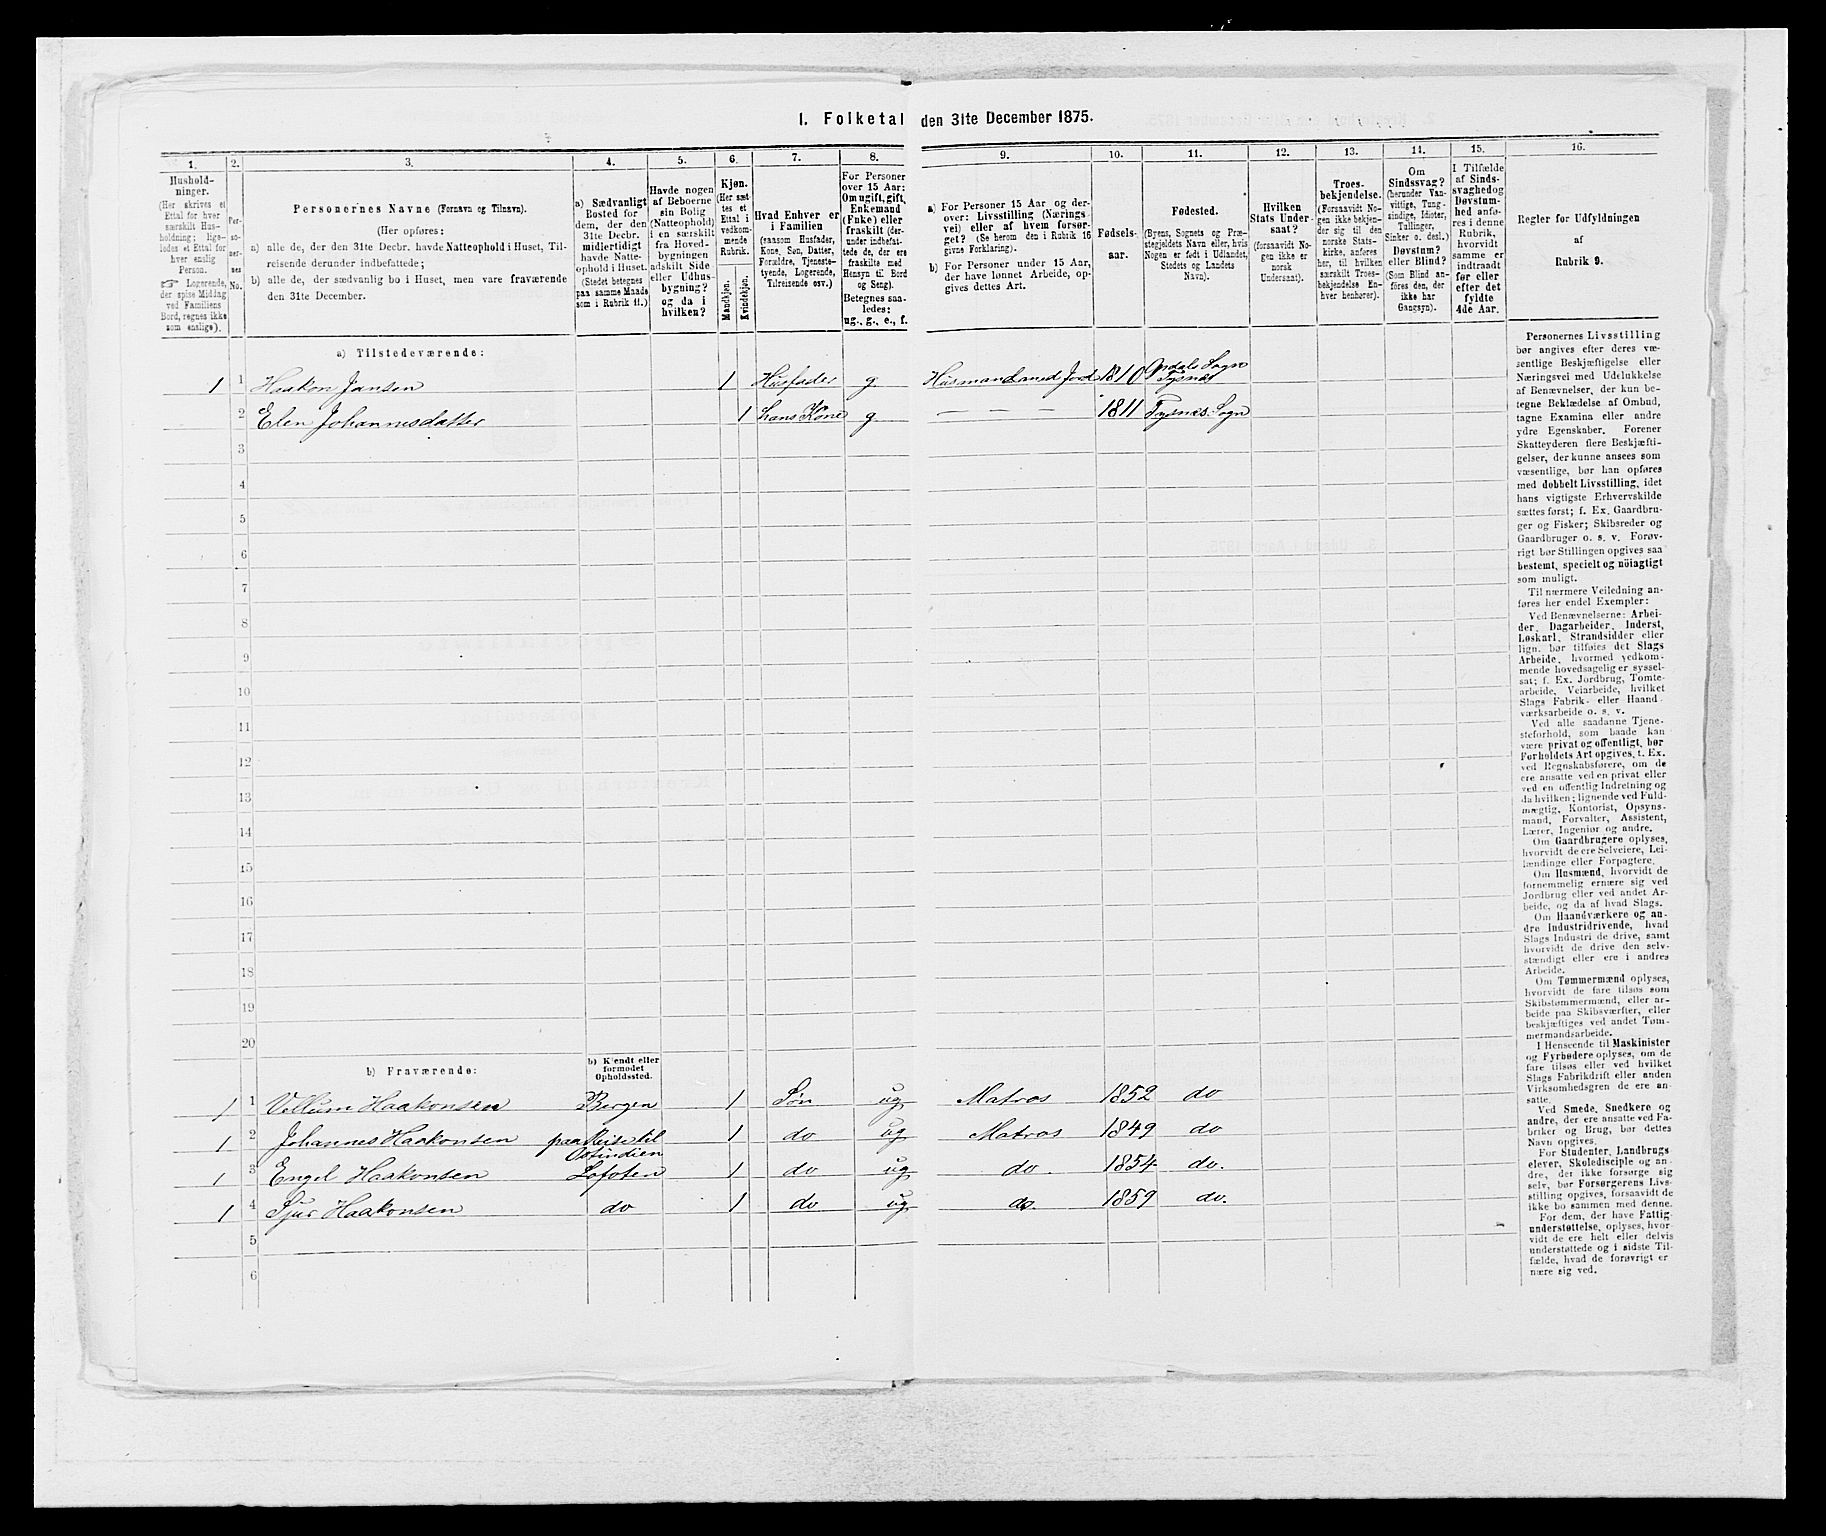 I. Folketal den 31te December 1875.
1. 2. 3. 4. 5. 6. 7. 8. 9. 10. 11. 12. 13. 14. 15. 16.
Hushold-
ninger.
(Her skrives et
Ettal for hver
særskilt Hus-
holdning; lige-
ledes et Ettal for
hver enslig
Person.
☞ Logerende,
der spise Middag
ved Familiens
Bord, regnes ikke
som enslige).
Per-
so-
ner-
nes
No.
Personernes Navne (Fornavn og Tilnavn).
(Her opføres:
a) alle de, der den 31te Decbr. havde Natteophold i Huset, Til-
reisende derunder indbefattede;
b) alle de, der sædvanlig bo i Huset, men vare fraværende
den 31te December.
a) Sædvanligt
Bosted for
dem, der den
31te Decbr.
midlertidigt
havde Natte-
ophold i Huset.
(Stedet betegnes
paa samme Maade
som i Rubrik 11.)
Havde nogen
af Beboerne
sin Bolig
(Natteophold)
i en særskilt
fra Hoved-
bygningen
adskilt Side
eller Udhus-
bygning?
og da i
hvilken?
Kjøn.
(Her sæt-
tes et
Ettal i
vedkom-
mende
Rubrik.
Mandkjøn.
Kvindekjøn.
Hvad Enhver er
i Familien
(saasom Husfader,
Kone, Søn, Datter,
Forældre, Tjeneste-
tyende, Logerende,
Tilreisende osv.)
For Personer
over 15 Aar:
Om ugift, gift,
Enkemand
(Enke) eller
fraskilt (der-
under indbefat-
tede de, der ere
fraskilte med
Hensyn til Bord
og Seng).
Betegnes saa-
ledes:
ug., g., e., f.
a) For Personer 15 Aar og der-
over: Livsstilling (Nærings-
vei) eller af hvem forsør-
get? (Se herom den i Rubrik 16
givne Forklaring).
b) For Personer under 15 Aar,
der have lønnet Arbeide, op-
gives dettes Art.
Fødsels-
aar.
Fødested.
(Byens, Sognets og Præ-
stegjeldets Navn eller, hvis
Nogen er født i Udlandet,
Stedets og Landets
Navn).
Hvilken
Stats Under-
saat?
(forsaavidt No-
gen ikke er
norsk
Undersaat).
Troes-
bekjendelse.
(Forsaavidt No-
gen ikke bekjen-
der sig til den
norske Stats-
kirke, anføres
her, til hvilken
særskilt Troes-
bekjendelse En-
hver henhører).
Om
Sindssvag?
(herunder Van-
vittige, Tung-
sindige, Idioter,
Tullinger,
Sinker o. desl.)
Døvstum?
eller Blind?
(Som Blind an-
føres den, der
ikke har
Gangsyn).
I Tilfælde
af Sinds-
svaghed og
Døvstum-
hed anfø-
res i denne
Rubrik,
hvorvidt
samme er
indtraadt
før eller
efter det
fyldte
4de Aar.
Regler for Udfyldningen
af
Rubrik 9.
a) Tilstedeværende:
1 1 Haakon Jansen 1 Husfader g Husmand med Jord 1810 Opdals Sogn Tysnæs
2 Elen Johannesdatter 1 hans Kone g — — — 1811 Tysnæs Sogn
3
4
5
6
7
8
9
10
11
12
13
14
15
16
17
18
19
20
b) Fraværende:
b) Kjendt eller
formodet
Opholdssted.
1 1 Vellum Haakonsen Bergen 1 Søn ug Matros 1852 do
1 2 Johannes Haakonsen paa Reise til Ostindien 1 do ug Matros 1849 do
1 3 Engel Haakonsen Lofoten 1 do ug do. 1854 do.
1 4 Sjur Haakonsen do 1 do ug do. 1859 do.
5
6
Personernes Livsstilling
bør angives efter deres væ-
sentlige Beskjæftigelse eller
Næringsvei med Udelukkelse
af Benævnelser, der kun be-
tegne Beklædelse af Ombud,
tagne Examina eller andre
ydre Egenskaber. Forener
Skatteyderen flere Beskjæfti-
gelser, der kunne ansees som
væsentlige, bør han opføres
med dobbelt Livsstilling, idet
hans vigtigste Erhvervskilde
sættes først; f. Ex. Gaardbru-
ger og Fisker; Skibsreder og
Gaardbruger o. s. v. Forøv-
rigt bør Stillingen opgives saa
bestemt, specielt og nöiagtigt
som muligt.
Til nærmere Veiledning an-
føres her endel Exempler:
Ved Benævnelserne: Arbei-
der, Dagarbeider, Inderst,
Løskarl, Strandsidder eller
lign. bør tilføies det Slags
Arbeide, hvormed vedkom-
mende hovedsagelig er syssel-
sat; f. Ex. Jordbrug, Tomte-
arbeide, Veiarbeide, hvilket
Slags Fabrik- eller Haand-
værksarbeide o. s. v.
Ved alle saadanne Tjene-
steforhold, som baade kan
være privat og offentligt, bør
Forholdets Art opgives, t. Ex.
ved Regnskabsførere, om de
ere ansatte ved en privat eller
ved en offentlig Indretning og
da hvilken; lignende ved Fuld-
mægtig, Kontorist, Opsyns-
mand, Forvalter, Assistent,
Lærer, Ingeniør og andre.
Om Gaardbrugere oplyses,
hvorvidt de ere Selveiere, Lei-
lændinge eller Forpagtere.
Om Husmænd, hvorvidt de
fornemmelig ernære sig ved
Jordbrug eller ved andet Ar-
beide, og da af hvad Slags.
Om Haandværkere og an-
dre Industridrivende, hvad
Slags Industri de drive, samt
hvorvidt de drive den selv-
stændigt eller ere i andres
Arbeide.
Om Tømmermænd oplyses,
hvorvidt de fare tilsøs som
Skibstømmermænd, eller ar-
beide paa Skibsværfter, eller
beskjæftiges ved andet Tøm-
mermandsarbeide.
I Henseende til Maskinister
og Fyrbødere oplyses, om de
fare tilsøs eller ved hvilket
Slags Fabrikdrift eller anden
Virksomhedsgren de ere an-
satte.
Ved Smede, Snedkere og
andre, der ere ansatte ved Fa-
briker og Brug, bør dettes
Navn opgives.
For Studenter, Landbrugs
elever, Skoledisciple og an-
dre, der ikke forsørge sig
selv, bør Forsørgerens Livs-
stilling opgives, forsaavidt de
ikke bo sammen med denne.
For dem, der have Fattig-
understøttelse, oplyses, hvor-
vidt de ere helt eller delvis
understøttede og i sidste Til-
fælde, hvad de forøvrigt er
nære sig ved.